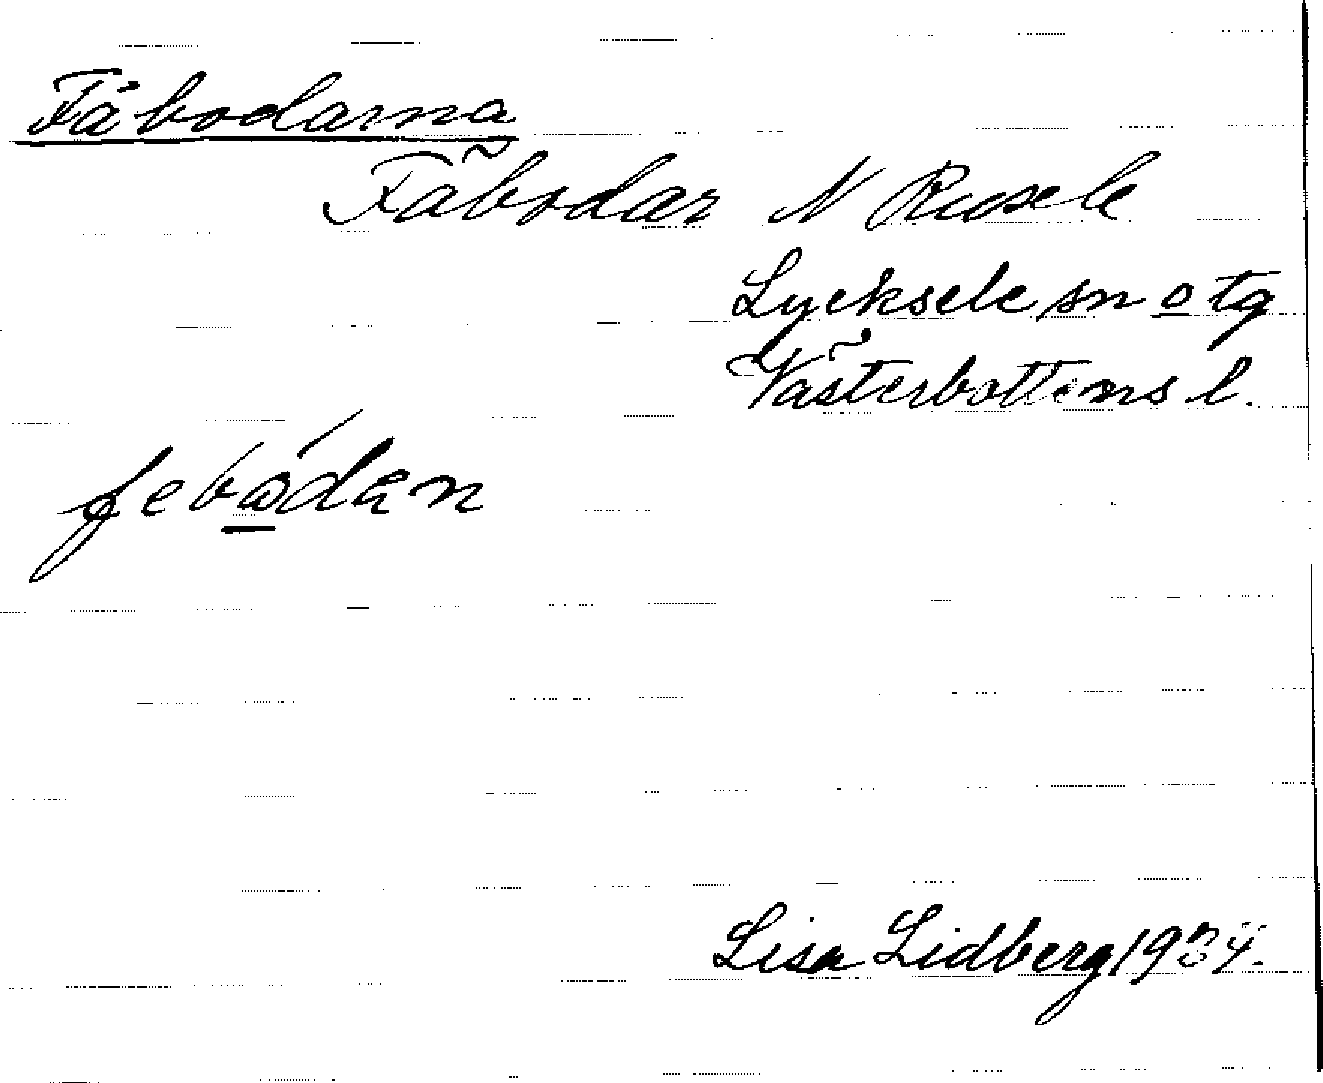 Fäbodarna
Fäbodar N Rusele
Lycksele sn o tg
Västerbottens l.
febodan
Lisa Lidberg 1934.